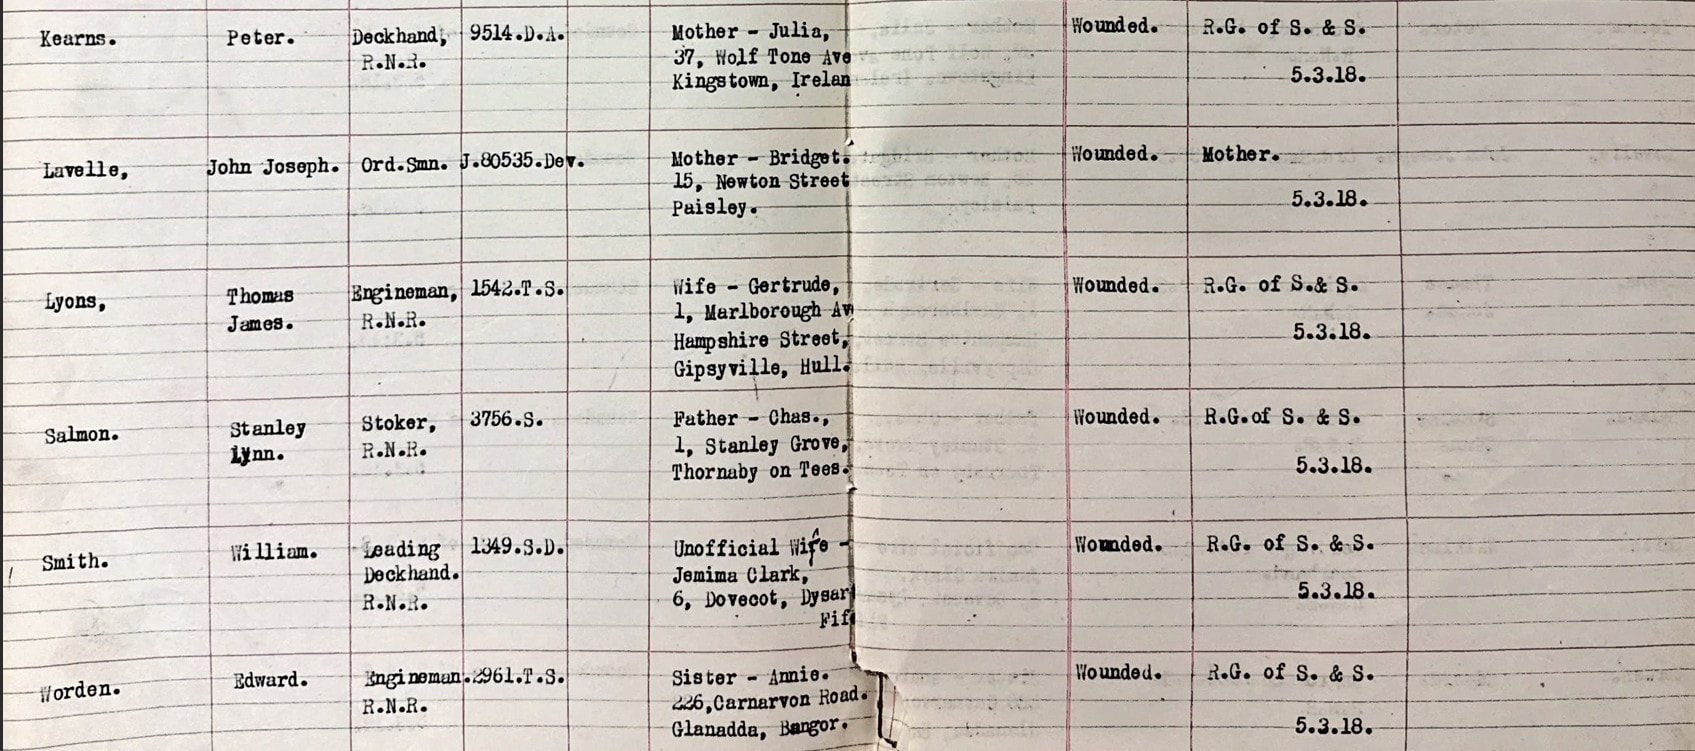 Kearns. Peter. Deckhand, 9514.D.A. Mother - Julia, Wounded. R.G. of S. & S.
R.N.R. 37, Wolf Tone Ave
Kingstown, Irelan 5.3.18.
Lavelle, John Joseph. Ord.Smn. J.80535.Dev. Mother - Bridget. Wounded. Mother.
15, Newton Street
Paisley. 5.3.18.
Lyons, Thomas Engineman, 1542.T.S. Wife - Gertrude, Wounded. R.G. of S.& S.
James. R.N.R. 1, Marlborough Av
Hampshire Street, 5.3.18.
Gipsyville, Hull.
Salmon. Stanley Stoker, 3756.S. Father - Chas., Wounded. R.G.of S. & S.
Lynn. R.N.R. 1, Stanley Grove,
Thornaby on Tees. 5.3.18.
Smith. William. Leading 1349.S.D. Unofficial Wife - Wounded. R.G. of S. & S.
Deckhand. Jemima Clark,
R.N.R. 6, Dovecot, Dysar 5.3.18.
Fif
Worden. Edward. Engineman. 2961.T.S. Sister - Annie. Wounded. R.G. of S. & S.
R.N.R. 226,Carnarvon Road.
Glanadda, Bangor. 5.3.18.